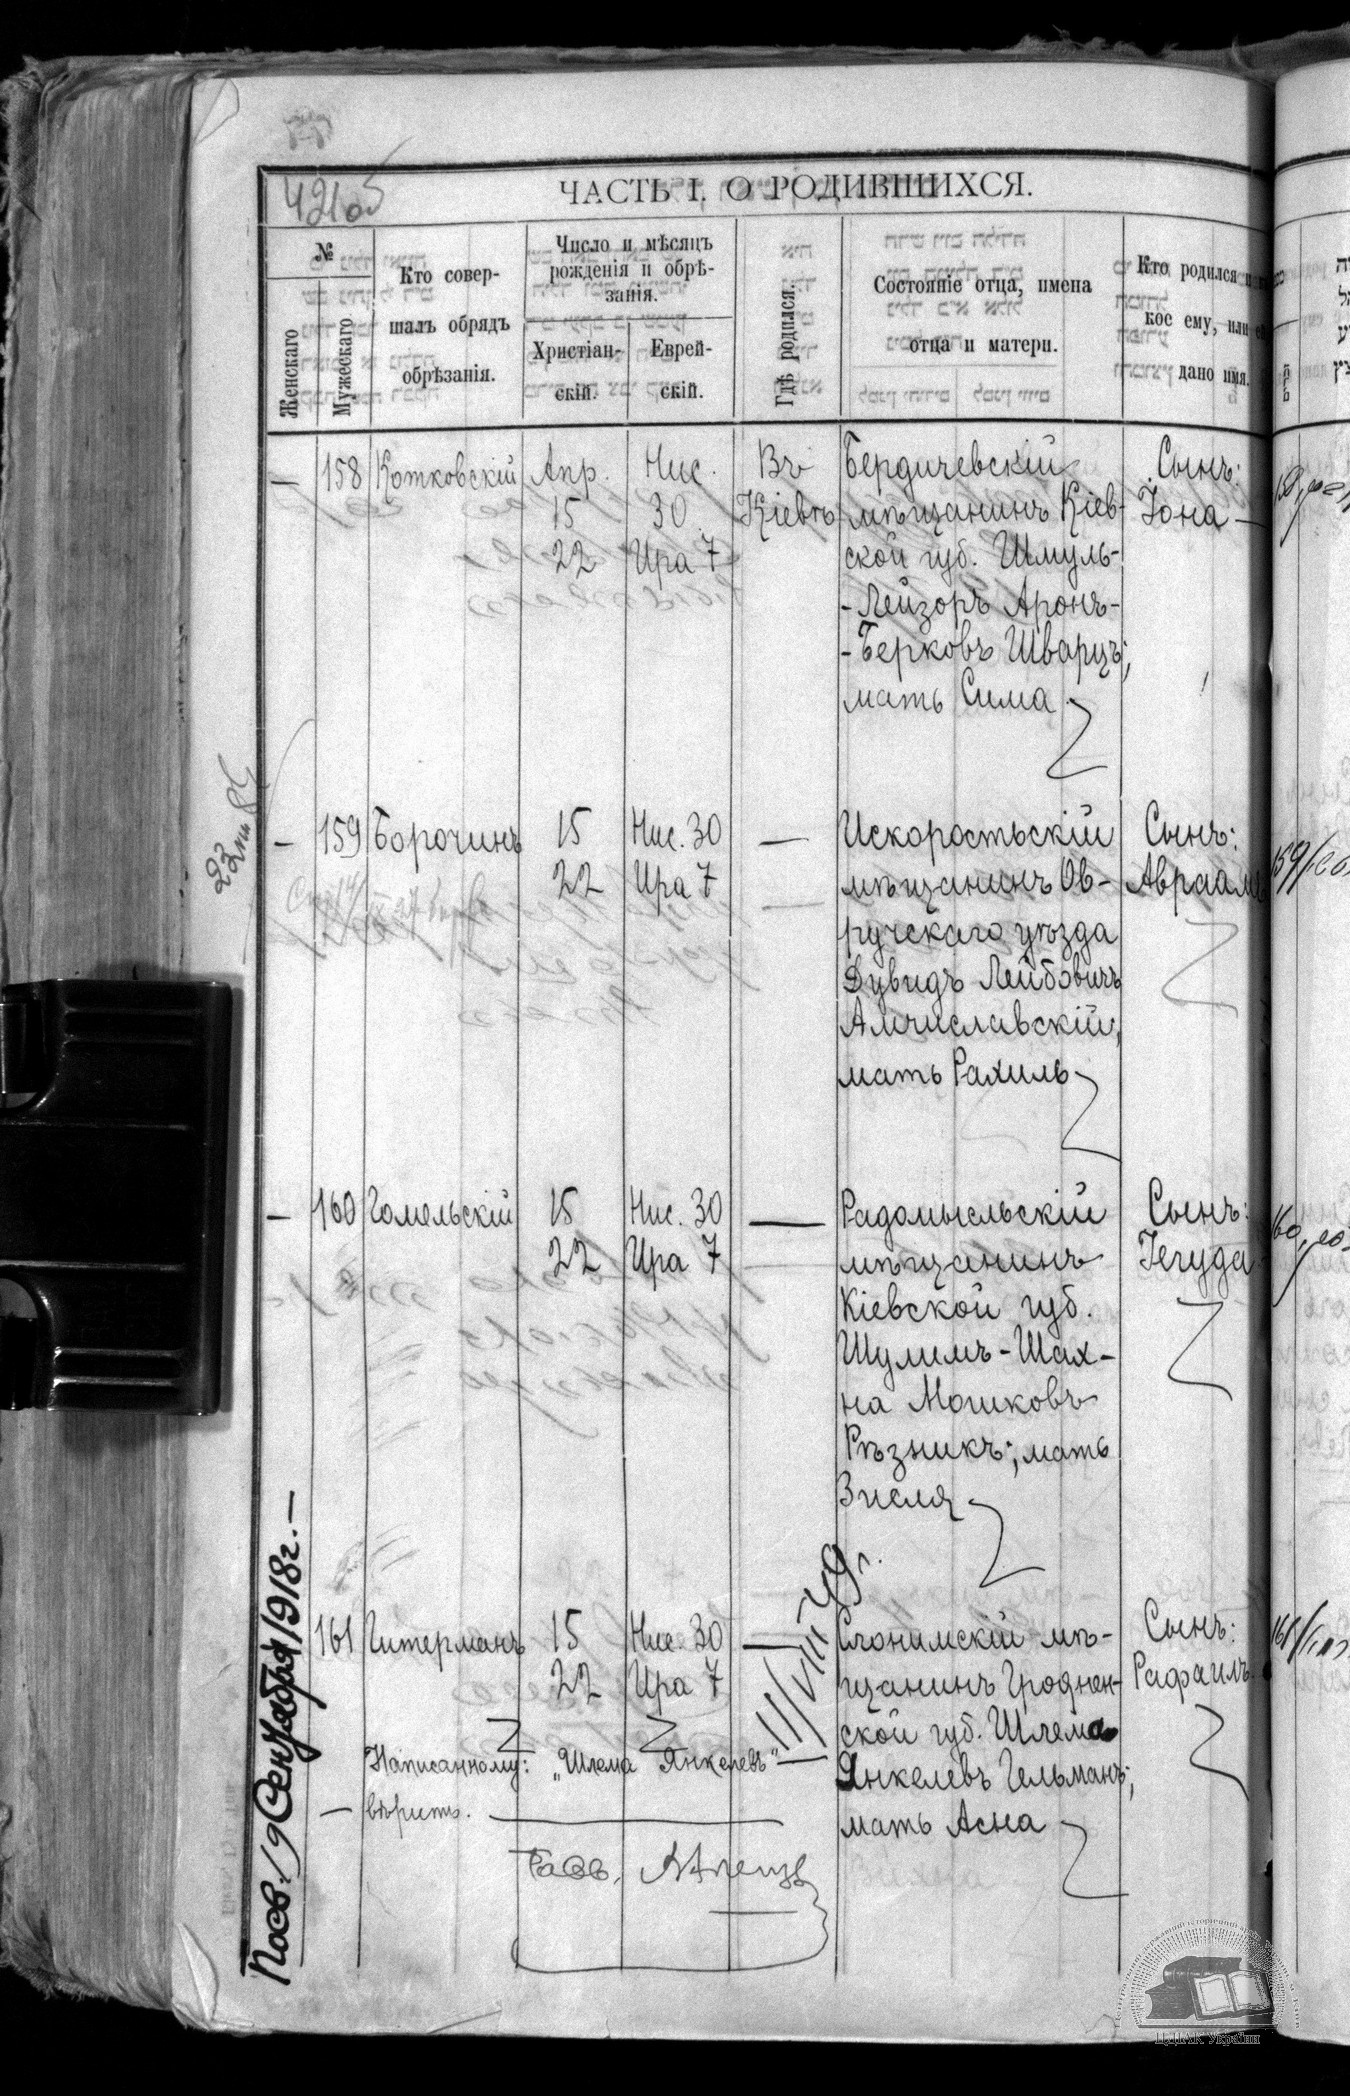 421об
ЧАСТЬ I. О РОДИВШИХСЯ.
№
Женскаго
Мужескаго
Кто совер-
шалъ обрядъ
обрѣзанія.
Число и мѣсяцъ
рожденія и обрѣ-
занія.
Христіан-
скій.
Еврей-
скій.
Гдѣ родился.
Состояніе отца, имена
отца и матери.
Кто родился и
кое ему, или
дано имя.
— 158 Котковскій Апр. Нис. Въ Бердичевскій Сынъ:
15 30 Кіевѣ мѣщанинъ Кіев- Іона —
22 Ира 7 ской губ. Шмуль-
-Лейзоръ Аронъ-
-Берковъ Шварцъ;
мать Сима
— 159 Борочинъ 15 Нис. 30 — Искоростьскій Сынъ:
22 Ира 7 мѣщанинъ Ов- Авраамъ
ручскаго уѣзда
Дувидъ Лейбовичъ
Амчиславскій;
мать Рахиль
— 160 Гомельскій 15 Нис. 30 — Радомысльскій Сынъ:
22 Ира 7 мѣщанинъ Іегуда
Кіевской губ.
Шулимъ-Шах-
на Мошковъ
Рѣзникъ; мать
Зисля
161 Гитерманъ 15 Нис. 30 — Слонимскій мѣ- Сынъ:
22 Ира 7 щанинъ Гроднен- Рафаилъ
ской губ. Шлема
Янкелевъ Гельманъ;
мать Асна
Написанному: „Шлема Янкелевъ“ —
— вѣрить.
Равв.
11/VIII 49 г.
Посв. 19 Сентября 1918 г. —
158
159
160
161
ЦДІАК України